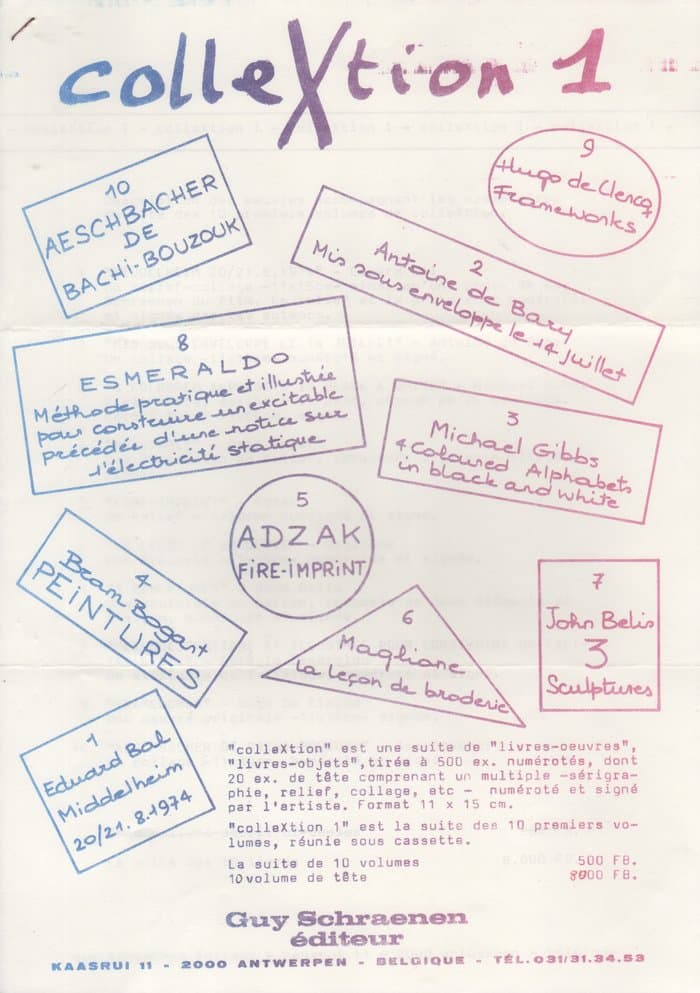 colleXtion 1
10
AESCHBACHER
DE
BACHI-BOUZOUK
9
Hugo de Clercq
Frameworks
2
Antoine de Bary
Mis sous enveloppe le 14 juillet
8
ESMERALDO
Méthode pratique et illustrée
pour construire un excitable
précédée d'une notice sur
l'électricité statique
3
Michael Gibbs
4 coloured Alphabets
in black and white
5
ADZAK
FIRE-IMPRINT
4
Bram Bogart
PEINTURES
6
Magliane
La leçon de broderie
7
John Belis
3
Sculptures
1
Eduard Bal
Middelheim
20/21.8.1974
"colleXtion" est une suite de "livres-oeuvres",
"livres-objets",tirée à 500 ex. numérotés, dont
20 ex. de tête comprenant un multiple -sérigra-
phie, relief, collage, etc - numéroté et signé
par l'artiste. Format 11 x 15 cm.
"colleXtion 1" est la suite des 10 premiers vo-
lumes, réunie sous cassette.
La suite de 10 volumes 500 FB.
10 volume de tête 8000 FB.
Guy Schraenen
éditeur
KAASRUI 11 - 2000 ANTWERPEN - BELGIQUE - TÉL. 031/31.34.53